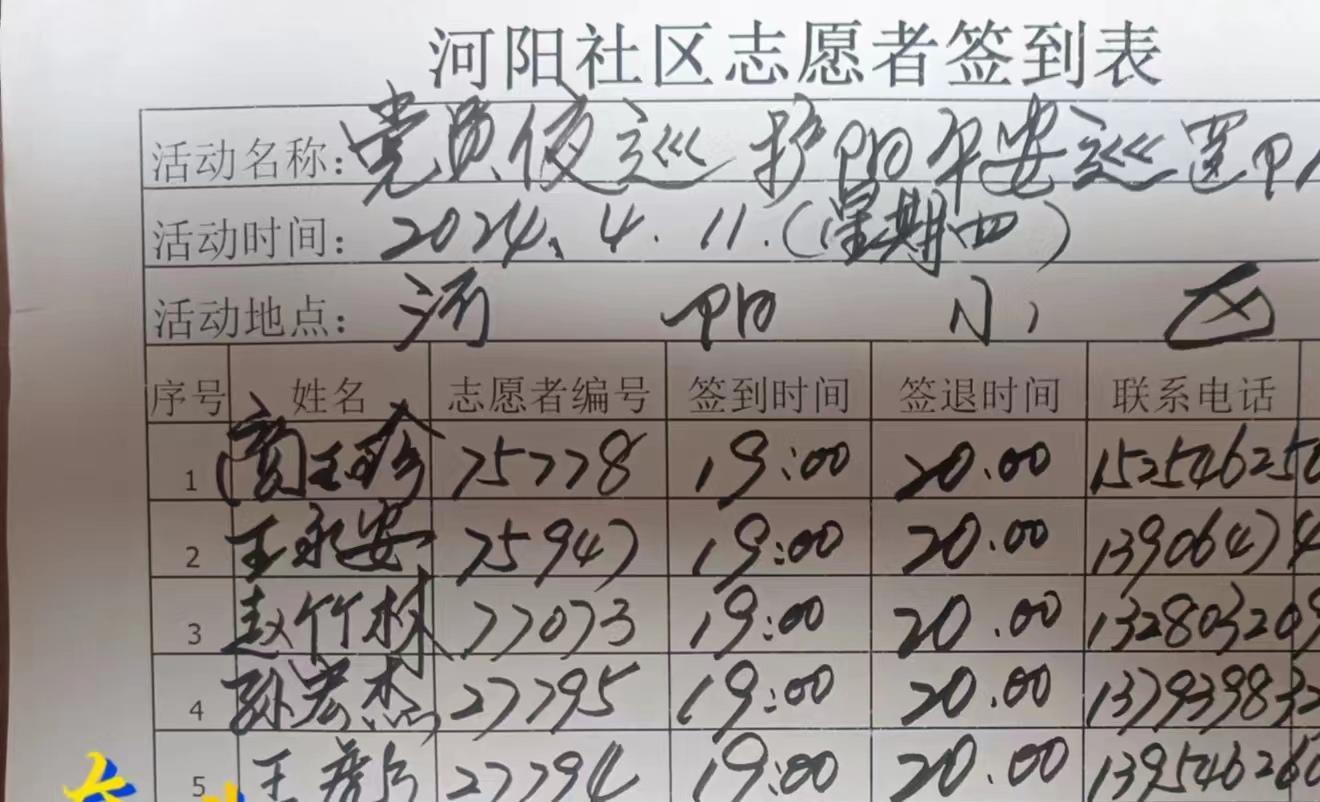 河阳社区志愿者签到表
活动名称：党员夜巡 护阳平安巡逻
活动时间：2024.4.11.(星期四)
活动地点：河阳小区
序号 姓名 志愿者编号 签到时间 签退时间 联系电话
1 75778 19:00 20.00 15254625
2 王永安 75947 19:00 20.00 13906474
3 赵竹林 77073 19:00 20.00 132803209
4 孙宏杰 27795 19:00 20.00 137939832
5 王 27794 19:00 20.00 13954626